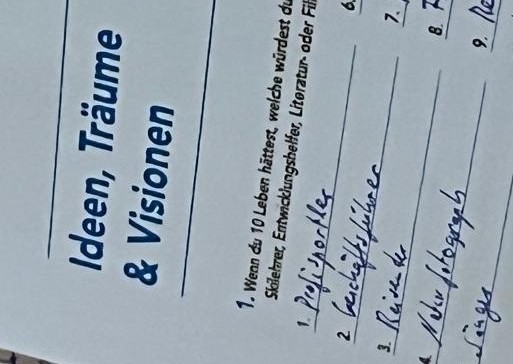 Ideen, Träume
& Visionen
1. Wenn du 10 Leben hättest, welche würdest du
Skilehrer, Entwicklungshelfer, Literatur- oder Fil
1. Profisportler
2 Geschäftsführer
3. Reisender
Naturfotograph
Sänger
6.
7.
8.
9. Re